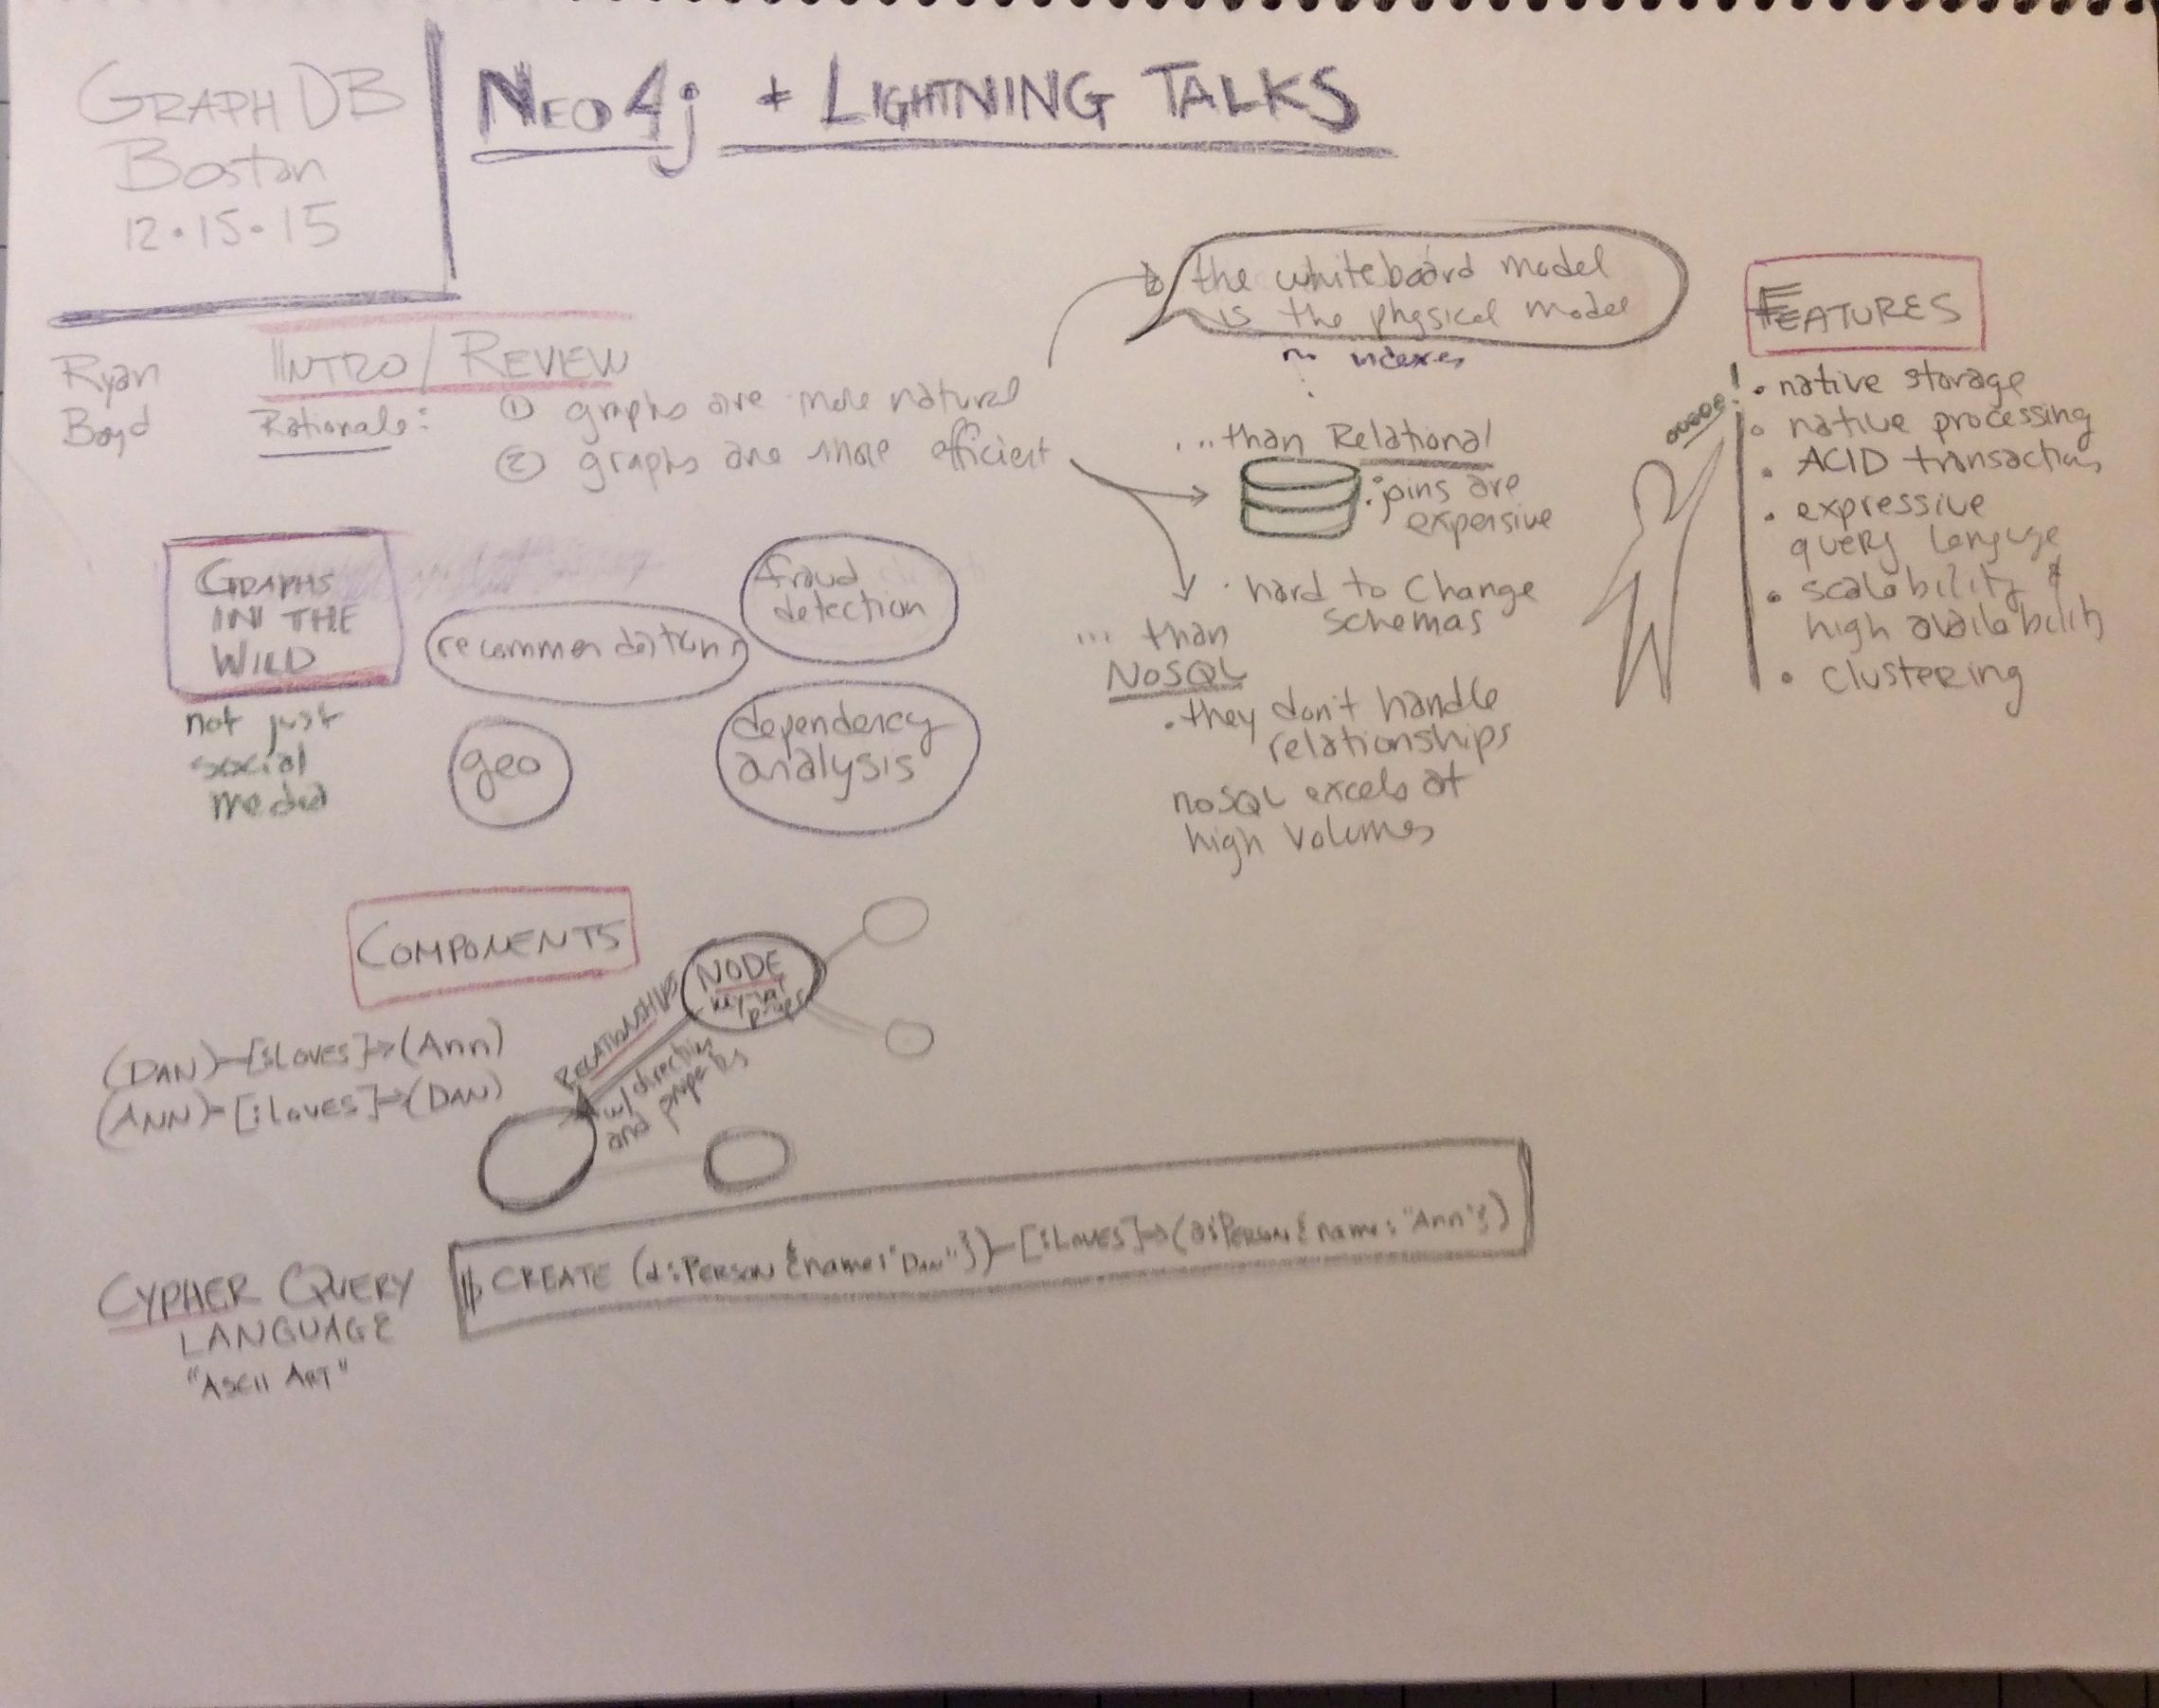 GRAPH DB
Boston
12.15.15
NEO4j + LIGHTNING TALKS
Ryan
Boyd
INTRO/REVIEW
Rationale:
① graphs are more natural
② graphs are more efficient
the whiteboard model
is the physical model
indexes
...than Relational
joins are
expensive
• hard to change
schemas
... than
NoSQL
• they don't handle
relationships
noSQL excels at
high volumes
FEATURES
• native storage
• native processing
• ACID transactions
• expressive
query language
• scalability &
high availability
• clustering
GRAPHS
IN THE
WILD
not just
social
media
recommendations
fraud
detection
geo
dependency
analysis
COMPONENTS
NODE
key-val
props
RELATIONSHIPS
w/direction
and properties
(DAN)-[:LOVES]->(Ann)
(ANN)-[:LOVES]->(DAN)
CYPHER QUERY
LANGUAGE
"ASCII ART"
$ CREATE (d:PERSON {name:"DAN"})-[:LOVES]->(a:PERSON {name:"Ann"})